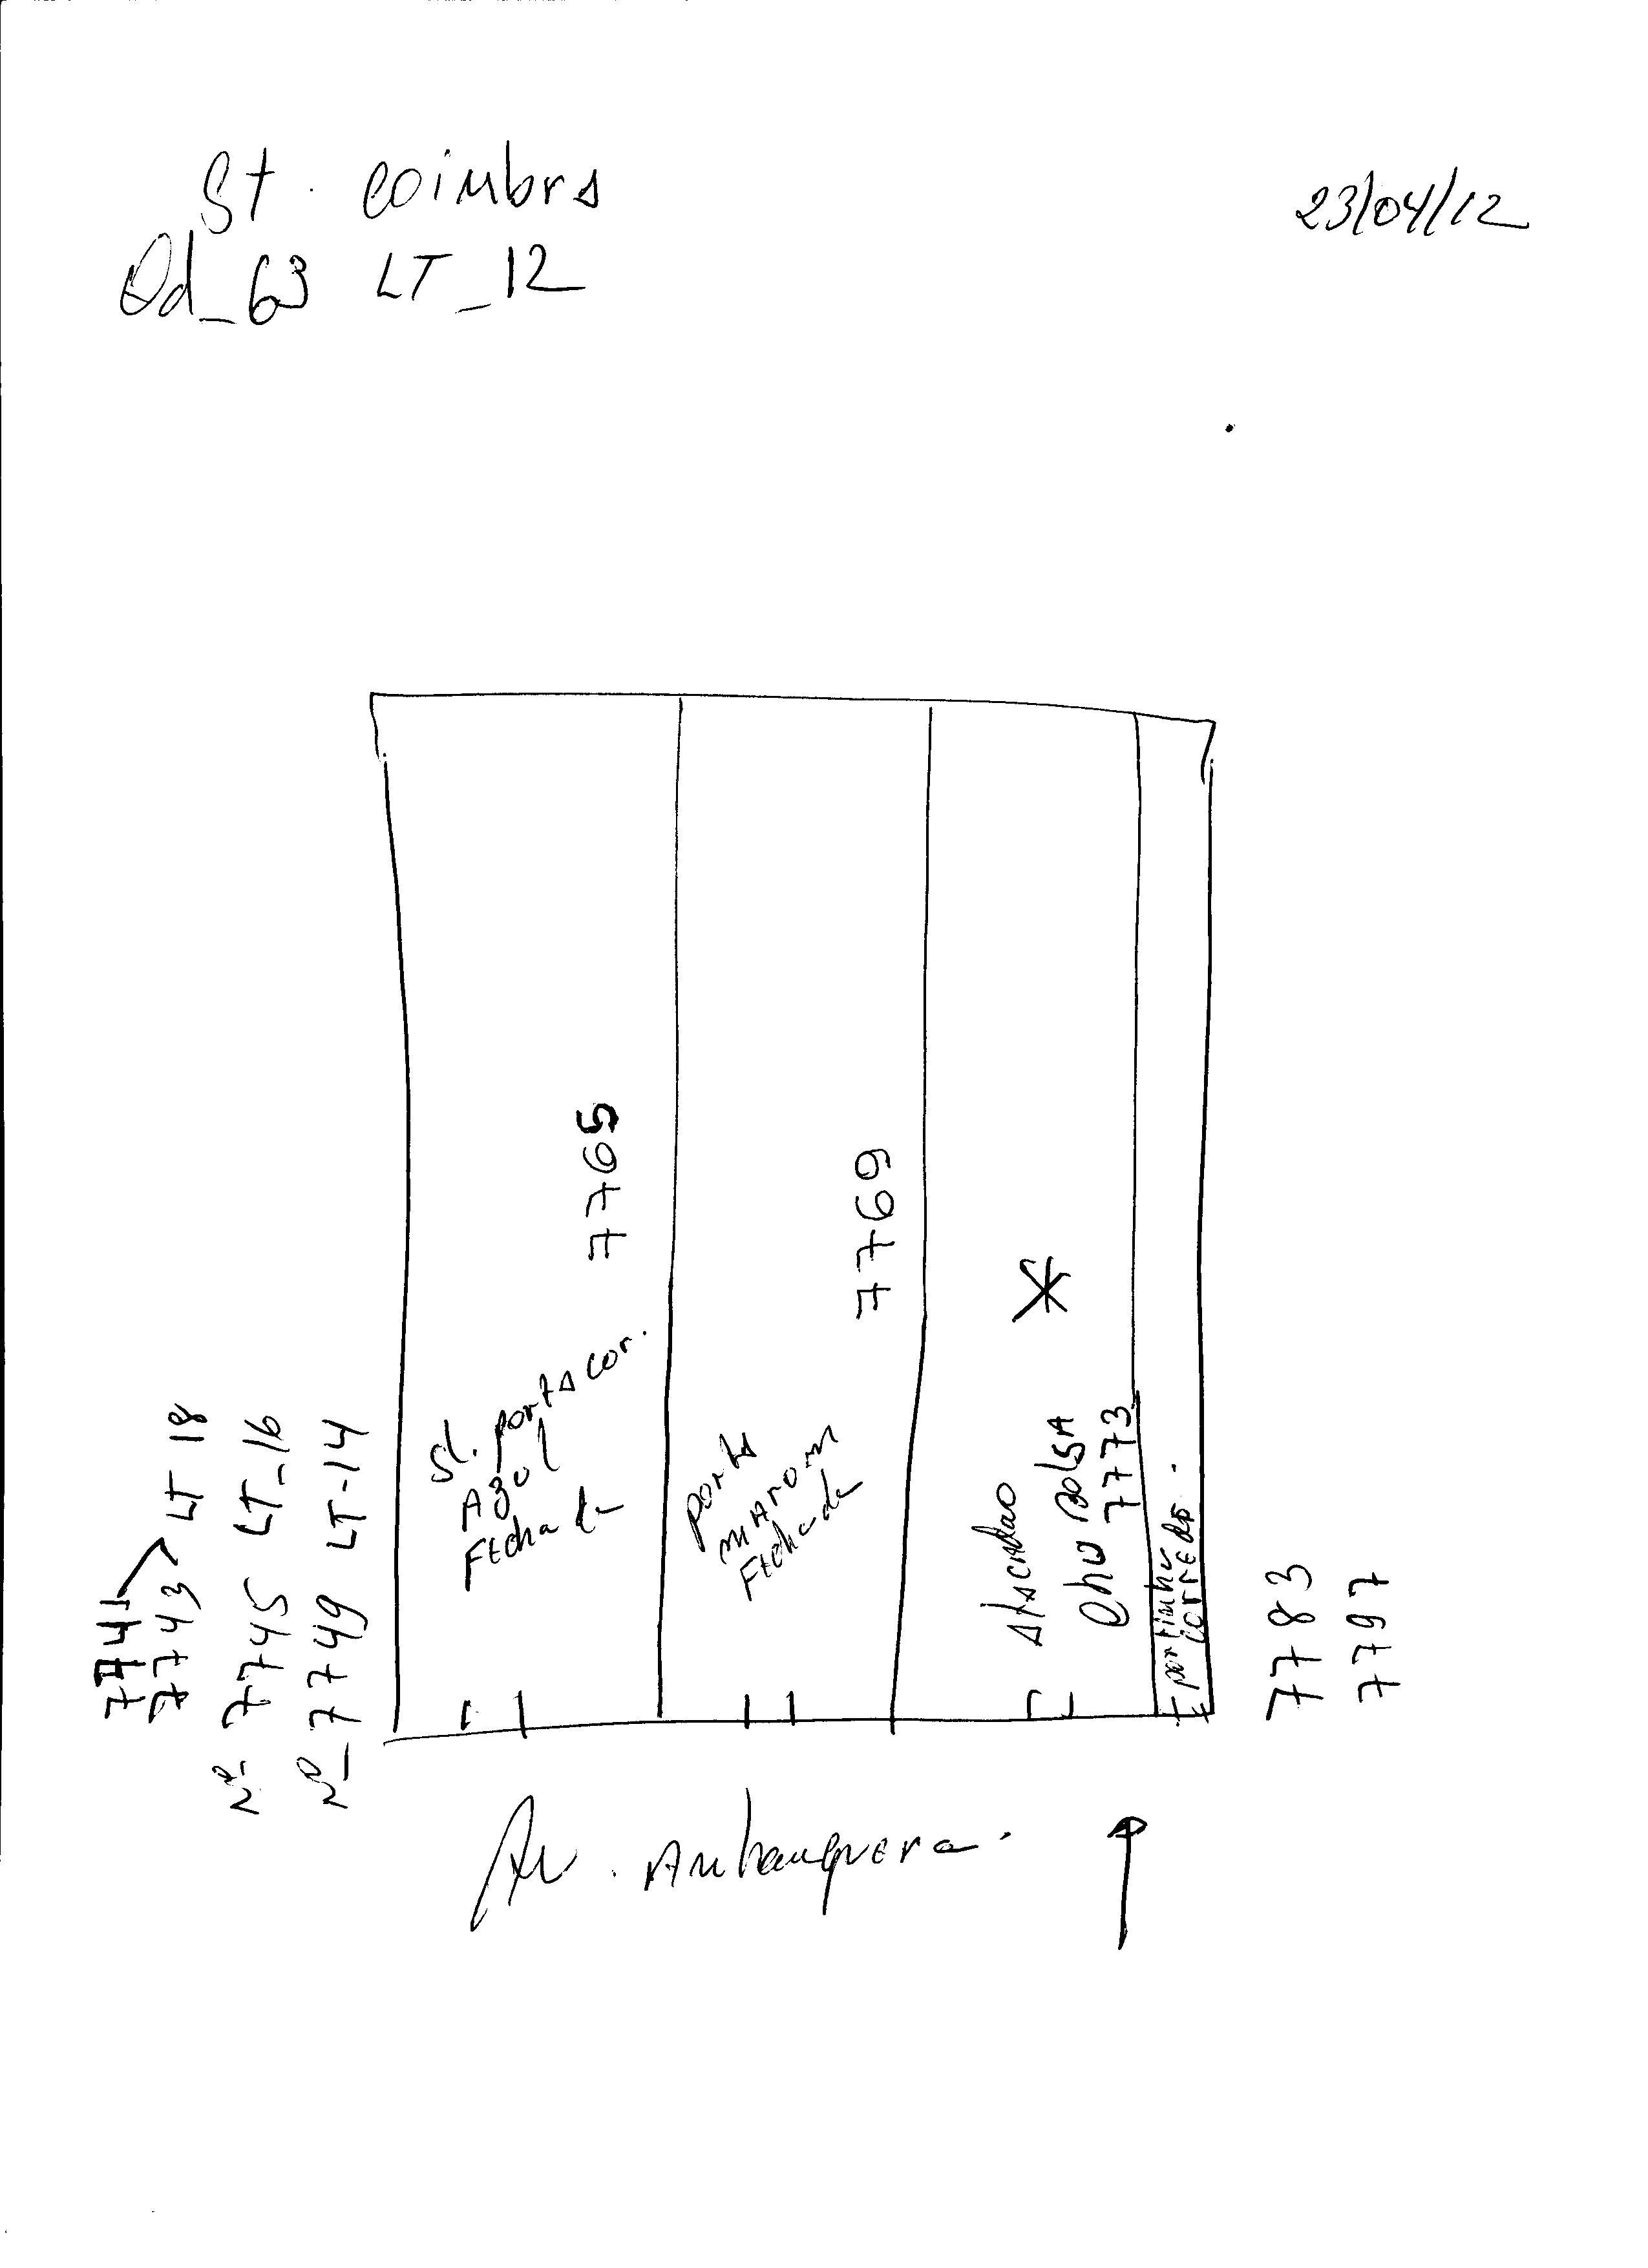 St. Coimbra
23/04/12
Qd_63 LT_12
7741
7743 LT 18
Nº 7745 LT_16
Nº_7749 LT-14
7765
Sl. porta cor.
Azul
Fechada
7769
porta
marrom
Fechada
Atacadao
Chu Bolsa
7773
portinha
corredo.
7783
7797
Av. Anhanguera.